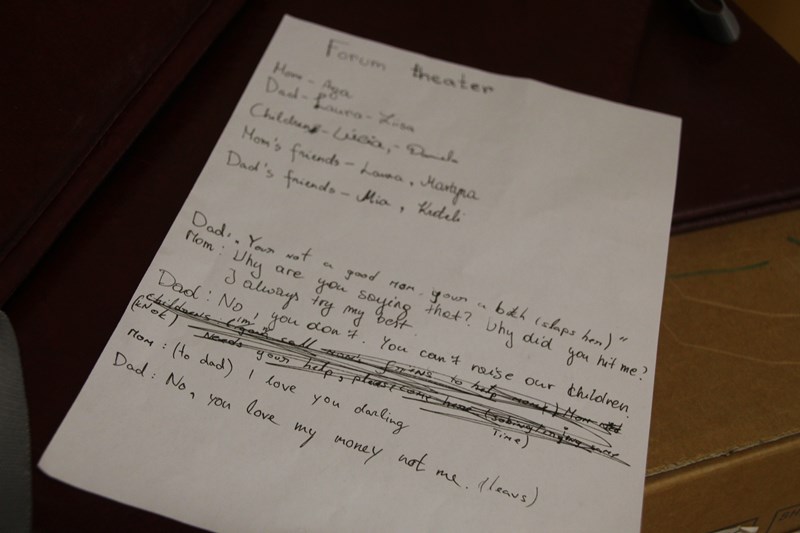 Forum theater
Mom - Aya
Dad - Laura - Liisa
Children - Lucia, - Daniela
Mom's friends - Laura, Martyna
Dad's friends - Mia, Keteli
Dad: Your not a good mom. your a bith (slaps her) "
Mom: Why are you saying that? Why did you hit me?
I always try my best.
Dad: No, you don't. You can't raise our children.
(KNOK)
needs your help, please come here
Time)
Mom: (to dad) I love you darling
Dad: No, you love my money not me. (leavs)